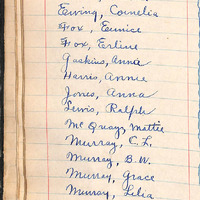 Ewing, Cornelia
Fox, Eunice
Fox, Erline
Gaskins, Anna
Harris, Annie
Jones, Anna
Lewis, Ralph
McQuay, Mattie
Murray, C. L.
Murray, B. W.
Murray, Grace
Murray, Lelia